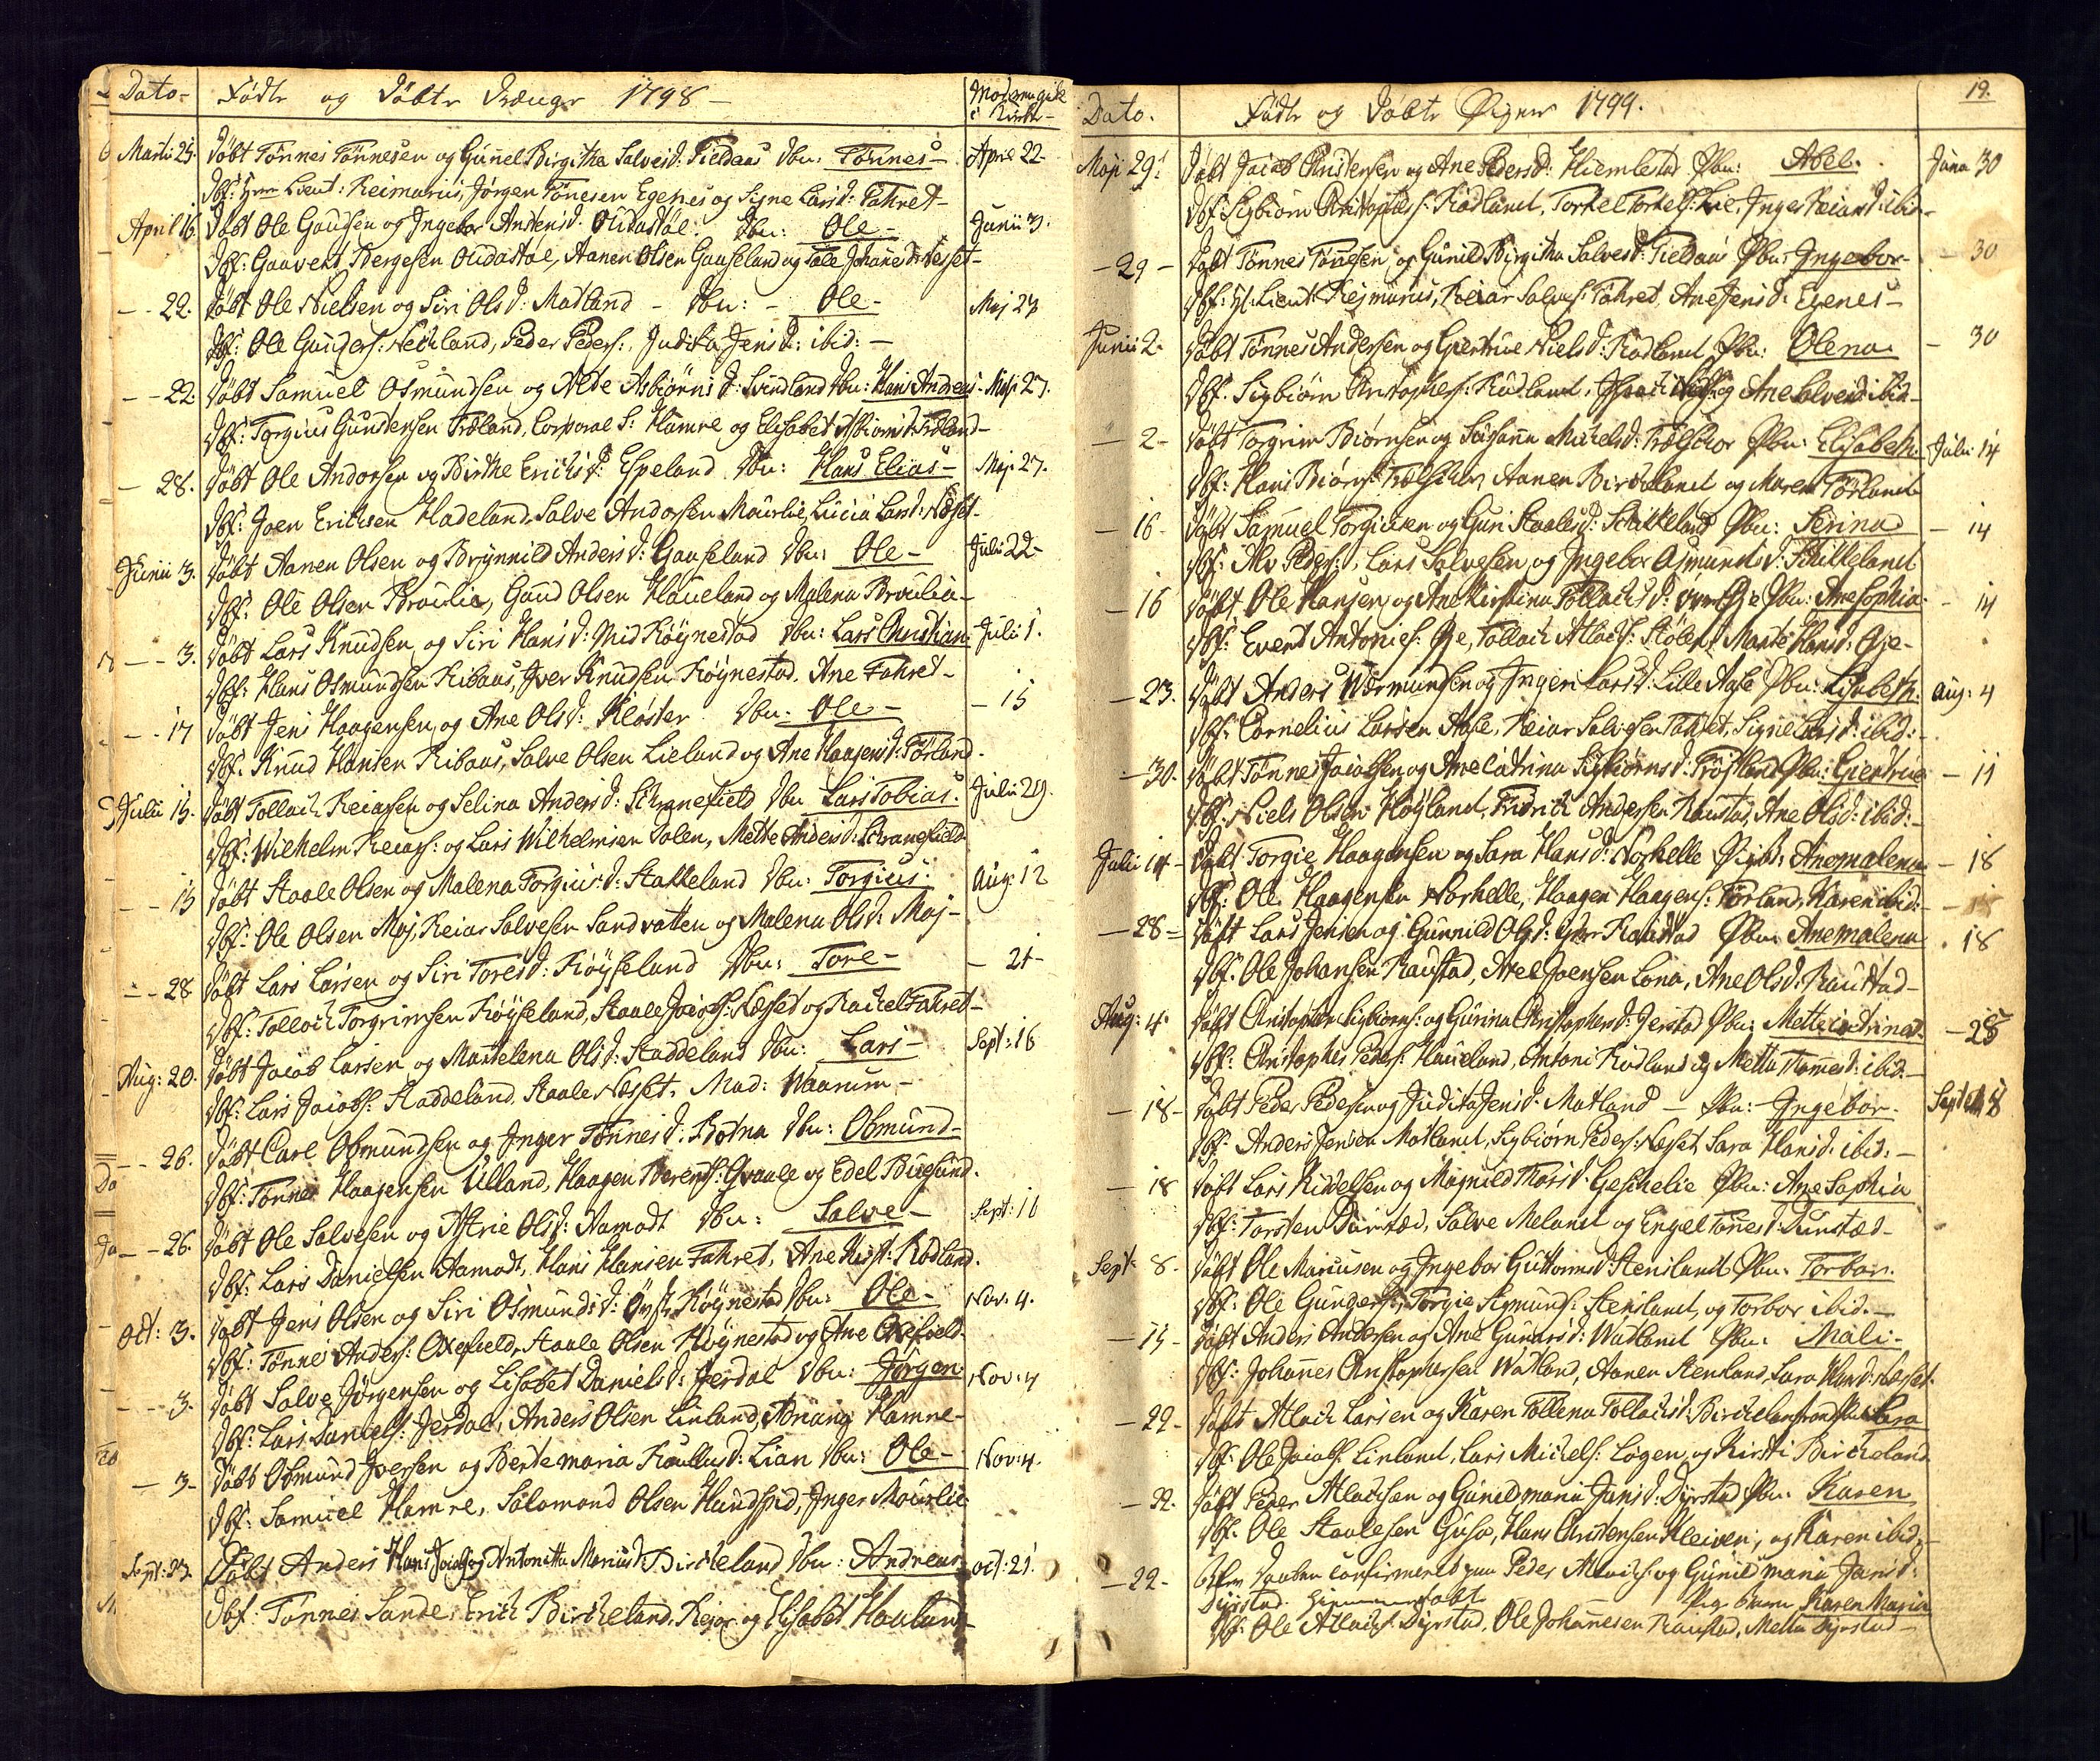 Dato- Födte og Döbte Drænge 1798 - Moderens gik i Kirke
Martii 25. Döbt Tönnes Tönnesen og Gunnel Birgitha Salves d: Tieldaas Dbn: Tönnes - April 22-
Dbf: Herr Lieut: Reimarus, Jörgen Tönesen Egenes og Signe Lars d: Fahret-
April 16. Döbt Ole Gausen og Ingebor Anstens d: Oudastöl. Dbn: Ole - Junii 3.
Dbf: Gauvend Bergesen Oudastöl, Aanen Olsen Gauseland og Tale Johanes d: Nesset-
- - 22. Döbt Ole Nielsen og Siri Ols d: Matland - Dbn: - Ole - Maj 27
Dbf: Ole Gunders: Netland, Peder Peders: Judita Jens d: ibid: -
- - 22. Döbt Samuel Osmundsen og Alte Asbiörns d: Svindland Dbn: Hans Andreas - Maji 27.
Dbf: Torgius Gundersen Fröland, Corporal S: Hamre og Elisabet Asbiörns d: Fröland-
- 28. Döbt Ole Andorsen og Birthe Erichs d: Espeland Dbn: Hans Elias - Maji 27.
Dbf: Joen Erichsen Hadeland, Salve Andorsen Mourlie, Lucia Lars d: Neset-
Junii 3. Döbt Aanen Olsen og Brynnild Anders d: Gauseland Dbn: Ole - Julii 22-
Dbf: Ole Olsen Broulie, Gaud Olsen Haueland og Malena Broulia-
- - 3. Döbt Lars Knudsen og Siri Hans d: Mid Röynestad Dbn: Lars Christian: Julii 1.
Dbf: Hans Osmundsen Ribaas, Iver Knudsen Röynestad, Ane Fahret-
- - 17 Döbt Jens Haagensen og Ane Ols d: Kloster Dbn: Ole - - 15
Dbf: Knud Hansen Ribaas, Salve Olsen Lieland og Ane Haagens d: Förland-
Julii 15. Döbt Tollach Reiersen og Selina Anders d: Skranefield Dbn Lars Tobias. Julii 29.
Dbf: Wilhelm Reiers: og Lars Wilhelmsen Dalen, Mette Anders d: Skranefield
- - 15 Döbt Staale Olsen og Malena Torgius: d: Stakkeland Dbn: Torgius. Aug: 12
Dbf: Ole Olsen Moj, Reiar Salvesen Sandvatten og Malena Ols d: Moj-
- - 28 Döbt Lars Larsen og Siri Tores d: Röyseland Dbn: Tore - - 21-
Dbf: Tollach Torgrimsen Röyseland, Staale Jacobs: Nesset og Rachel Fahret-
Aug: 20. Döbt Jacob Larsen og Mantelena Ols d: Staddeland Dbn: Lars - Sept: 16
Dbf: Lars Jacobs: Staddeland, Staale Nesset, Mad: Waarum-
- - 26. Döbt Carl Obmundsen og Inger Tönnes d: Botna Dbn: Obmund-
Dbf: Tönnes Haagensen Ulland, Haagen Berents: Qvaale og Edel Buesund.
- - 26. Döbt Ole Salvesen og Astrie Ols d: Aamodt Dbn: Salve - Sept: 16
Dbf: Lars Danielsen Aamodt, Hans Hansen Fahret, Ane Kirst: Rödland.
Oct: 3. Döbt Jens Olsen og Siri Osmunds d: Övste Röynestad Dbn: Ole - Nov. 4.
Dbf: Tönnes Anders: Oxefield, Staale Olsen Röynestad og Ane Oxefield-
- - 3. Döbt Salve Jörgensen og Lisabet Daniels d: Jerdal Dbn: Jörgen Nov: 4
Dbf: Lars Daniels: Jerdal, Anders Olsen Linland, Adriana Hamre-
- 3- Döbt Obmund Iversen og Bertemaria Roullus d: Lian Dbn: Ole - Nov: 4.
Dbf: Samuel Hamre, Salomond Olsen Hundspid, Inger Mourlie
Sept: 23. Döbt Anders Hans Jacobs og Antonetta Marius d: Bircheland Dbn: Andreas Oct: 21.
Dbf: Tönnes Sande, Erich Bircheland, Rejar og Elisabet Houland-
19.
Dato. Födte og Döbte Piger 1799.
Maji 29. Döbt Jacob Christensen og Ane Peders d: Hiemlestad Pbn: Abel. Junii 30
Dbf: Sigbiörn Christophers: Rödland, Torkel Torkels: Lie, Inger Reiars d: ibid-
- 29 - Döbt Tönnes Tönnesen og Gunild Birgitha Salves d: Tieldaas Pbn: Ingebor - - 30
Dbf: Hr: Lieut: Rejmarus, Reiar Salves: Fahret, Ane Jens d: Egenes-
Junii 2. Döbt Tönnes Andersen og Giertrue Niels d: Rödland Pbn: Olena - 30
Dbf. Sigbiörn Christophers: Rödland, og Ane Salves d: ibid-
- 2 - Döbt Torgrim Biörnsen og Susanna Michels d: Trælschor Pbn: Elisabeth. Julii 14
Dbf: Hans Biörns: Trælschor, Aanen Bircheland og Maren Förland
- 16 - Döbt Samuel Torgiusen og Guri Staales d: Stakkeland Pbn: Serina - 14
Dbf: Peders: Lars Salvesen og Ingebor Osmunds d: Stakkeland
- 16 Döbt Ole Hansen og Ane Kirstina Tollachs d: Øye Pbn: Anesophia - 14
Dbf: Evend Antonies: Øye, Tollach Atlachs: Stölen, Marte Hans d: Øye-
- 23. Döbt Anders Wermundsen og Ingeri Lars d: Lille Aase Pbn: Lisabeth. Aug: 4
Dbf: Cornelius Larsen Aase, Reiar Salvesen Fahret, Signe Lars d: ibid:-
- 30. Döbt Tönnes Jacobsen og Ane Catrina Sigbiörns d: Tröjland Pbn: Giertrue - 11
Dbf: Niels Olsen Höyland, Fridrich Andersen Raustad, Ane Ols d: ibid:-
Julii 14 - Döbt Torgie Haagensen og Sara Hans d: Norhelle Pigb: Anemalena - 18
Dbf: Ole Haagensen Norhelle, Haagen Haagens: Förland, Karen ibid:-
- 28 = Döbt Lars Jensen og Gunnild Ols d: Ytre Raustad Pbn: Anemalena. 18
Dbf: Ole Johansen Raustad, Axel Joensen Lona, Ane Ols d: Raustad-
Aug: 4. Döbt Christopher Sigbiörns: og Gurina Christophers d: Jerstad Pbn: Mettecatrina. - 25
Dbf: Christopher Peders: Haueland, Antoni Rödland og Metta Tönnes d: ibid:-
- 18 - Döbt Peder Pedersen og Judita Jens d: Matland - Pbn: Ingebor. Sept: 8
Dbf: Anders Jensen Matland, Sigbiörn Peders: Neset, Sara Hans d: ibid:-
- 18 Döbt Lars Kiddelsen og Magnild Thors d: Geschelie Pbn: Ane Sophia
Dbf: Torsten Dunsæd, Salve Meland og Engel Tönnes d: Dunsæd-
Sept: 8. Döbt Ole Mariusen og Ingebor Guttorms d: Stensland Pbn: Torbor.
Dbf: Ole Gunders: Torgie Sigmunds: Stensland, og Torbor ibid.-
- 15 - Döbt Anders Andersen og Ane Gunnars d: Watland Pbn: Mali-
Dbf: Johannes Christophersen Watland, Aanen Stensland, Sara Hans d: Neset
- 22 - Döbt Atlach Larsen og Karen Tollena Tollachs d: Birchelandstrand Pbn: Sara
Dbf: Ole Jacobs: Linland, Lars Michels: Logen, og Kirsti Bircheland
- 22. Döbt Peder Atlachsen og Gunild maria Jans d: Dyrstad Pbn: Karen
Dbf: Ole Staalesen Gusa, Hans Christensen Kleiven, og Karen ibid:-
- 22 - Döben Confirmered paa Peder Atlachs: og Gunild maria Jans d:
Dyrstad. Hiemmedöbt Pige barn Karen Maria
Dbf: Ole Atlachs: Dyrstad, Ole Johannesen Raustad, Metta Dyrstad-